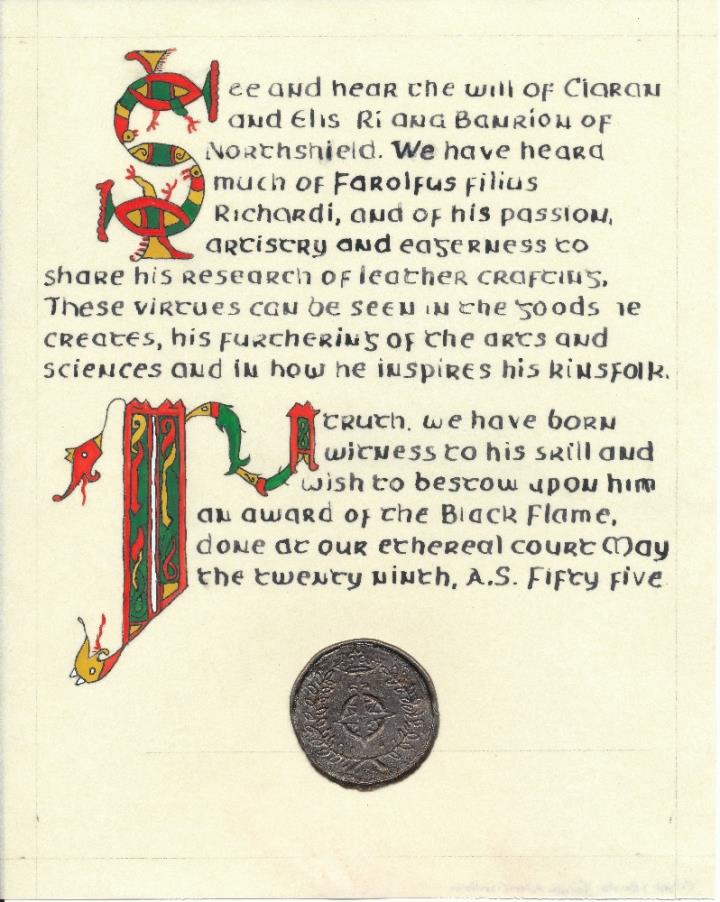 See and hear the will of Ciaran
and Elis Ri and Banrion of
Northshield. We have heard
much of Farolfus filius
Richardi, and of his passion,
artistry and eagerness to
share his research of leather crafting.
These virtues can be seen in the goods he
creates, his furthering of the arts and
sciences and in how he inspires his kinsfolk.
In truth, we have born
witness to his skill and
wish to bestow upon him
an award of the Black Flame,
done at our ethereal court May
the twenty ninth, A.S. Fifty five